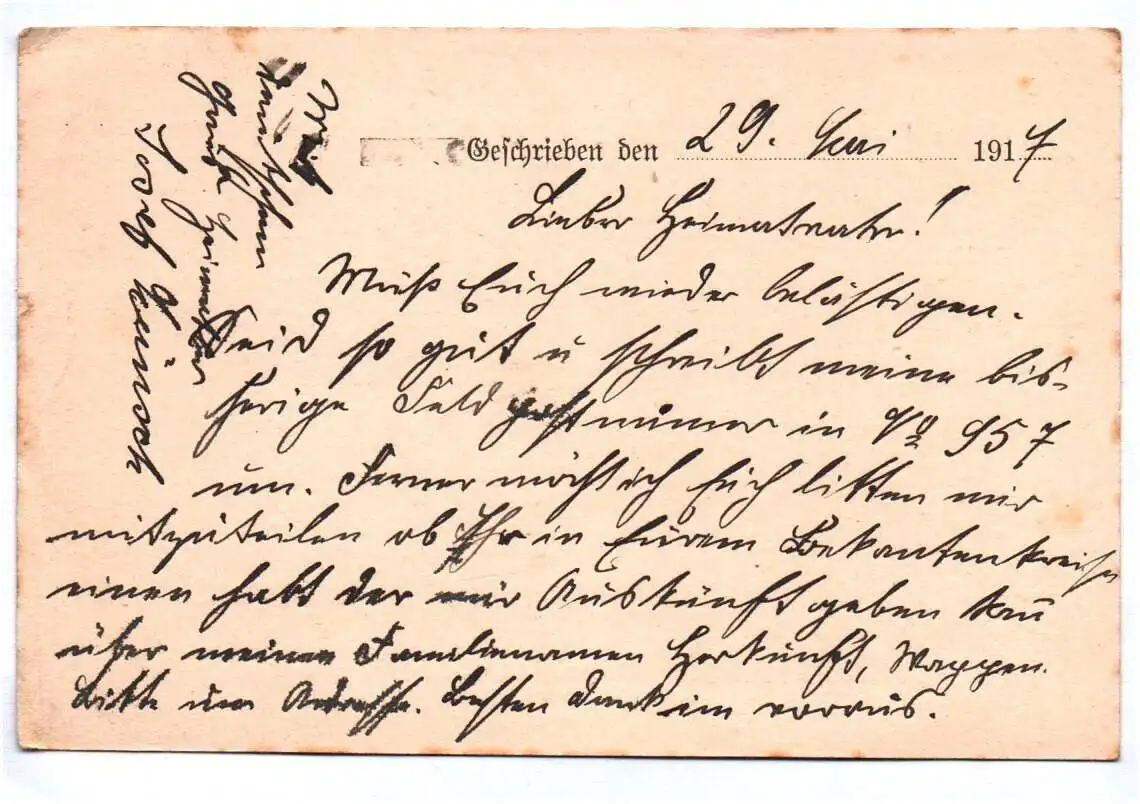 Geschrieben den 29. Juni 1917
Lieber Heimatvater!
Muß Euch wieder belästigen.
Seid so gut u schreibt meine bis-
herige Feldpostnumer in No 957
um. Ferner möcht ich Euch bitten mir
mitzuteilen ob Ihr in Eurem Bekantenkreise
einen habt der mir Auskunft geben kan
über meinen Familiennamen Herkunft, Wappen.
Bitte um Adresse. Besten Dank im voraus.
Mit
Gruß
Josef